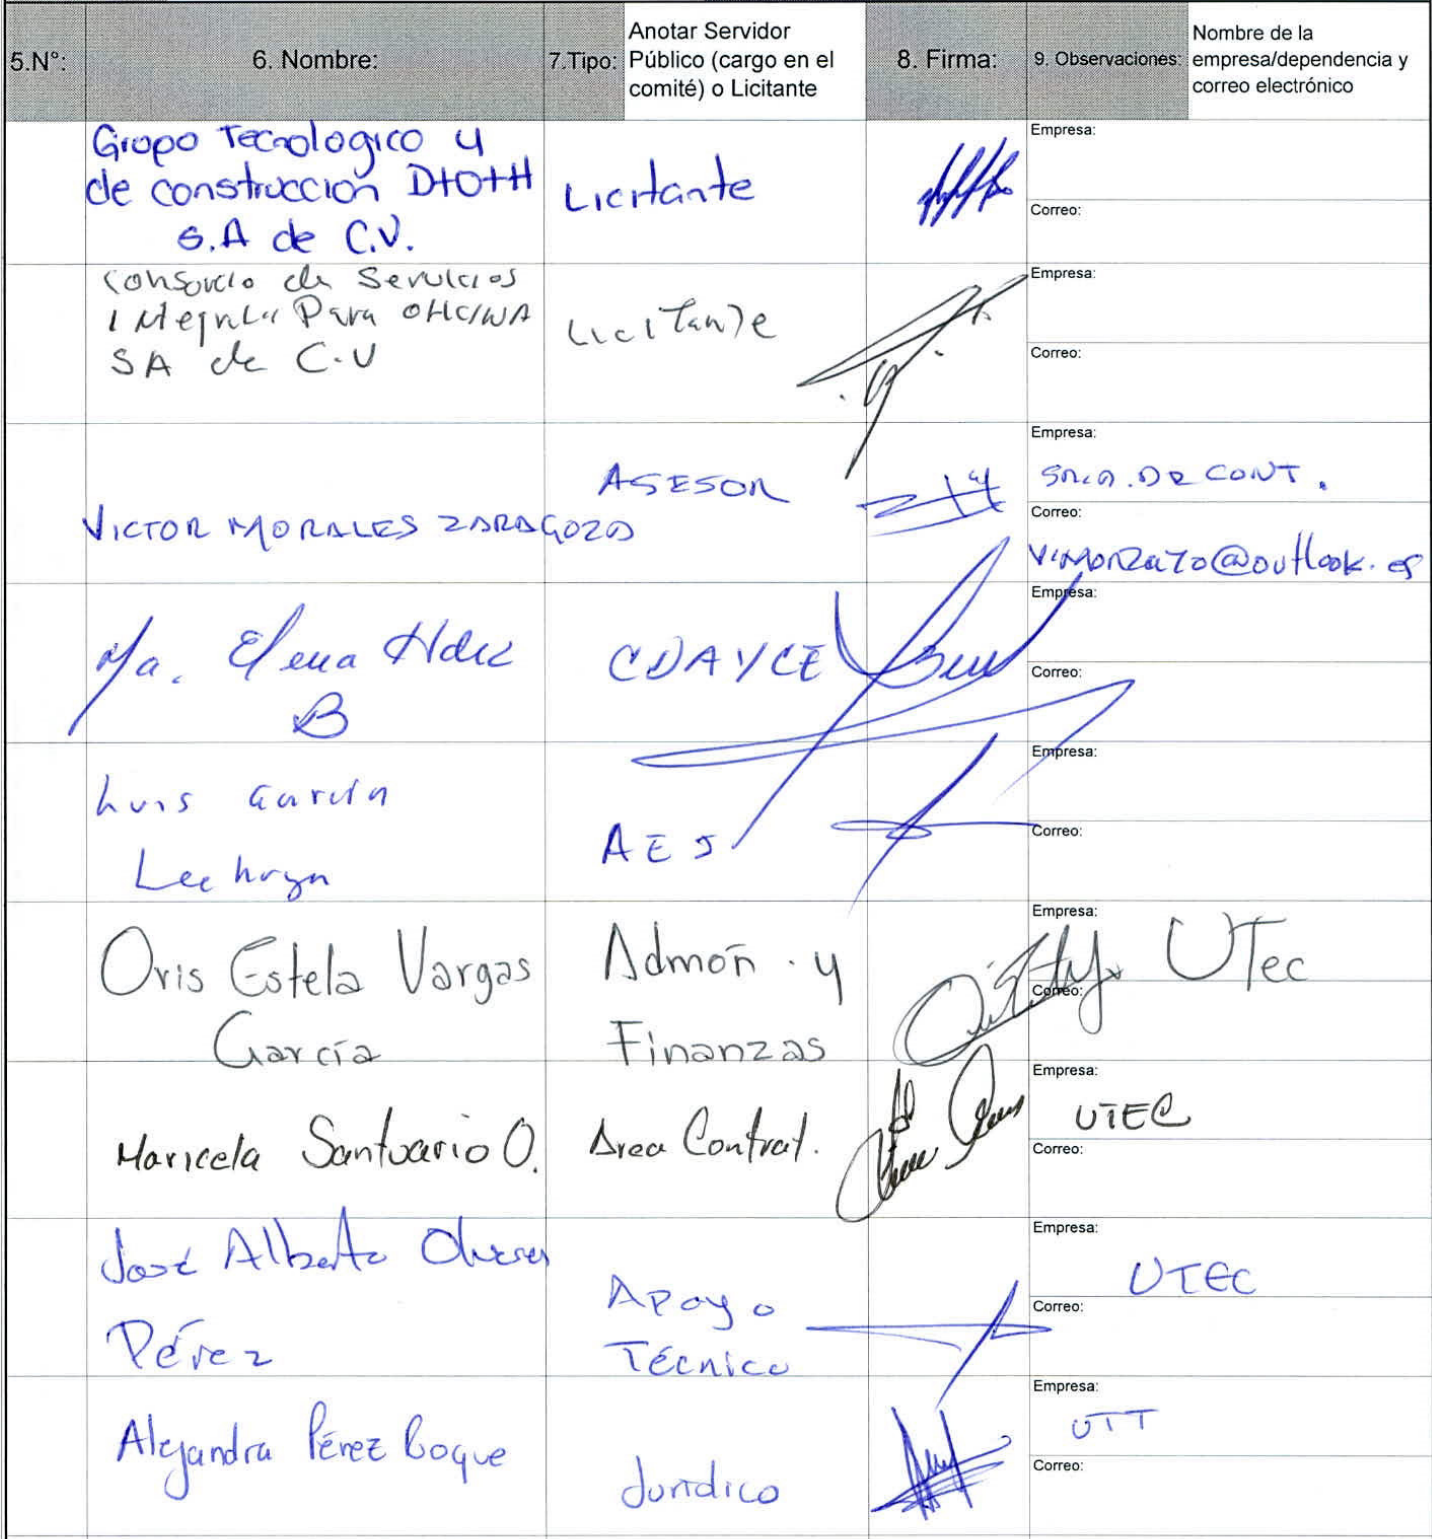 5.N°:
6. Nombre:
7.Tipo:
Anotar Servidor
Público (cargo en el
comité) o Licitante
8. Firma:
9. Observaciones:
Nombre de la
empresa/dependencia y
correo electrónico
Grupo Tecnologico y
de construccion D+O+H
S.A de C.V.
Licitante
Empresa:
Correo:
Consorcio de Servicios
Para OFICINA
SA de C.V
Licitante
Empresa:
Correo:
VICTOR MORALES ZARAGOZA
ASESOR
Empresa:
SRIA. DE CONT.
Correo:
Empresa:
Ma. Elena Hdez
B
CDAYCE
Correo:
Luis García
AES
Empresa:
Correo:
Oris Estela Vargas
García
Admón. y
Finanzas
Empresa:
UTec
Correo:
Maricela Santuario O.
Area Contrat.
Empresa:
UTEC
Correo:
José Alberto
Pérez
Apoyo
Técnico
Empresa:
UTEC
Correo:
Alejandra Pérez Roque
Jurídico
Empresa:
UTT
Correo: